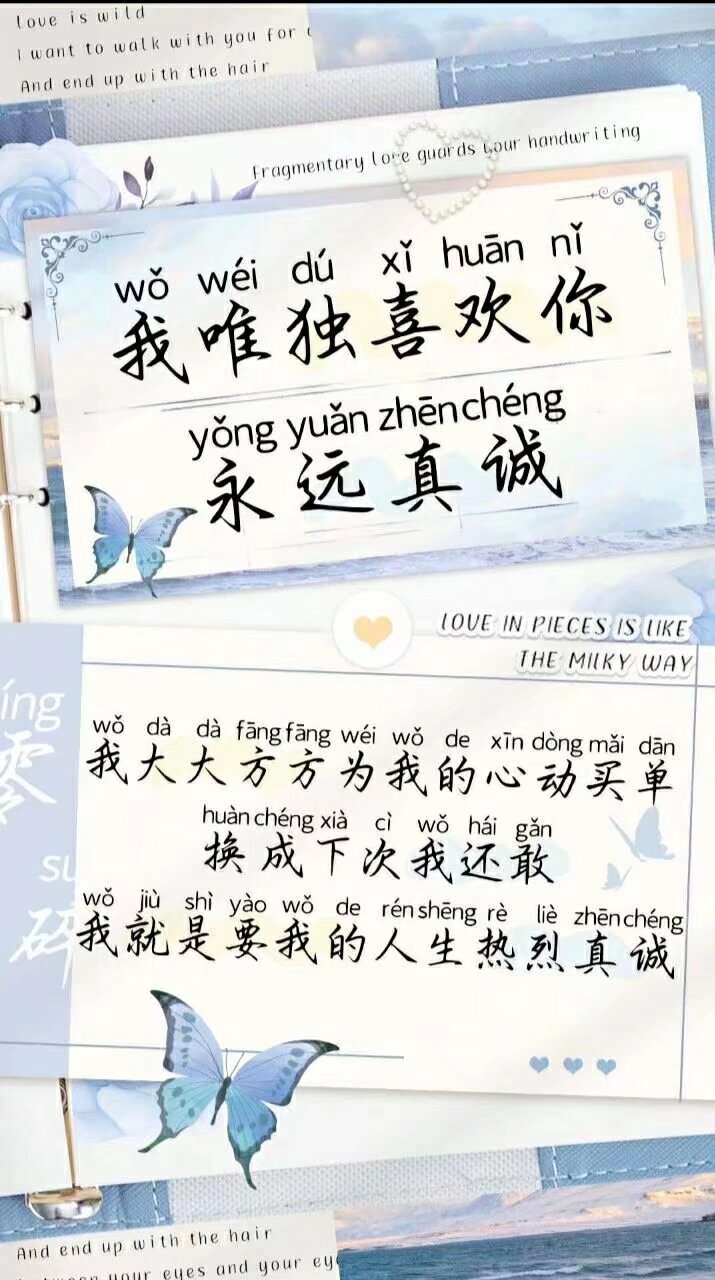 love is wild
I want to walk with you for
And end up with the hair
Fragmentary love guards your handwriting
wǒ wéi dú xǐ huān nǐ
我唯独喜欢你
yǒng yuǎn zhēn chéng
永远真诚
LOVE IN PIECES IS LIKE
THE MILKY WAY
íng
零
su
碎
wǒ dà dà fāng fāng wéi wǒ de xīn dòng mǎi dān
我大大方方为我的心动买单
huàn chéng xià cì wǒ hái gǎn
换成下次我还敢
wǒ jiù shì yào wǒ de rén shēng rè liè zhēn chéng
我就是要我的人生热烈真诚
And end up with the hair
between your eyes and your